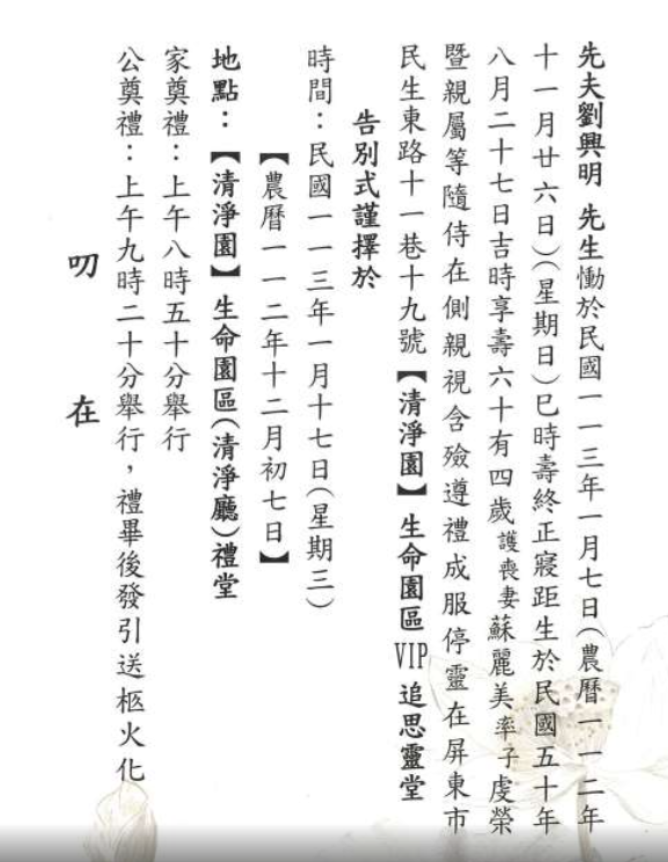 先夫劉興明 先生慟於民國一一三年一月七日(農曆一一二年
十一月廿六日)(星期日)巳時壽終正寢距生於民國五十年
八月二十七日吉時享壽六十有四歲護喪妻蘇麗美率子虔榮
暨親屬等隨侍在側親視含殮遵禮成服停靈在屏東市
民生東路十一巷十九號【清淨園】生命園區VIP追思靈堂
告別式謹擇於
時間：民國一一三年一月十七日(星期三)
【農曆一一二年十二月初七日】
地點：【清淨園】生命園區(清淨廳)禮堂
家奠禮：上午八時五十分舉行
公奠禮：上午九時二十分舉行，禮畢後發引送柩火化
叨 在